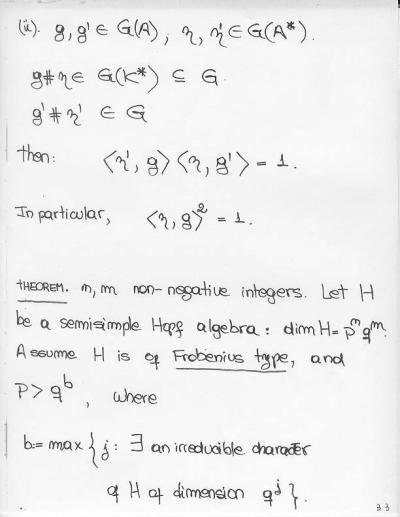 (ii). g, g' ∈ G(A), η, η' ∈ G(A*).
g#η ∈ G(K*) ⊆ G.
g'#η' ∈ G
then: ⟨η', g⟩⟨η, g'⟩ = 1.
In particular, ⟨η, g⟩² = 1.
THEOREM. n, m non-negative integers. Let H
be a semisimple Hopf algebra: dim H = pⁿqᵐ.
Assume H is of Frobenius type, and
p > q^b, where
b := max { j : ∃ an irreducible character
of H of dimension q^j }.
33